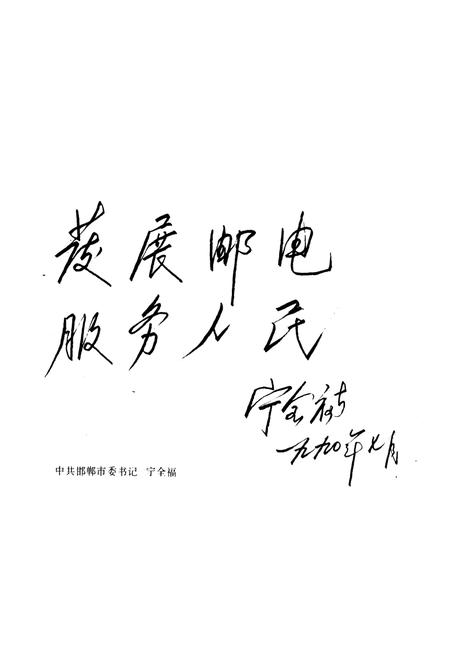 发展邮电
服务人民
宁全福
一九九〇年七月
中共邯郸市委书记 宁全福